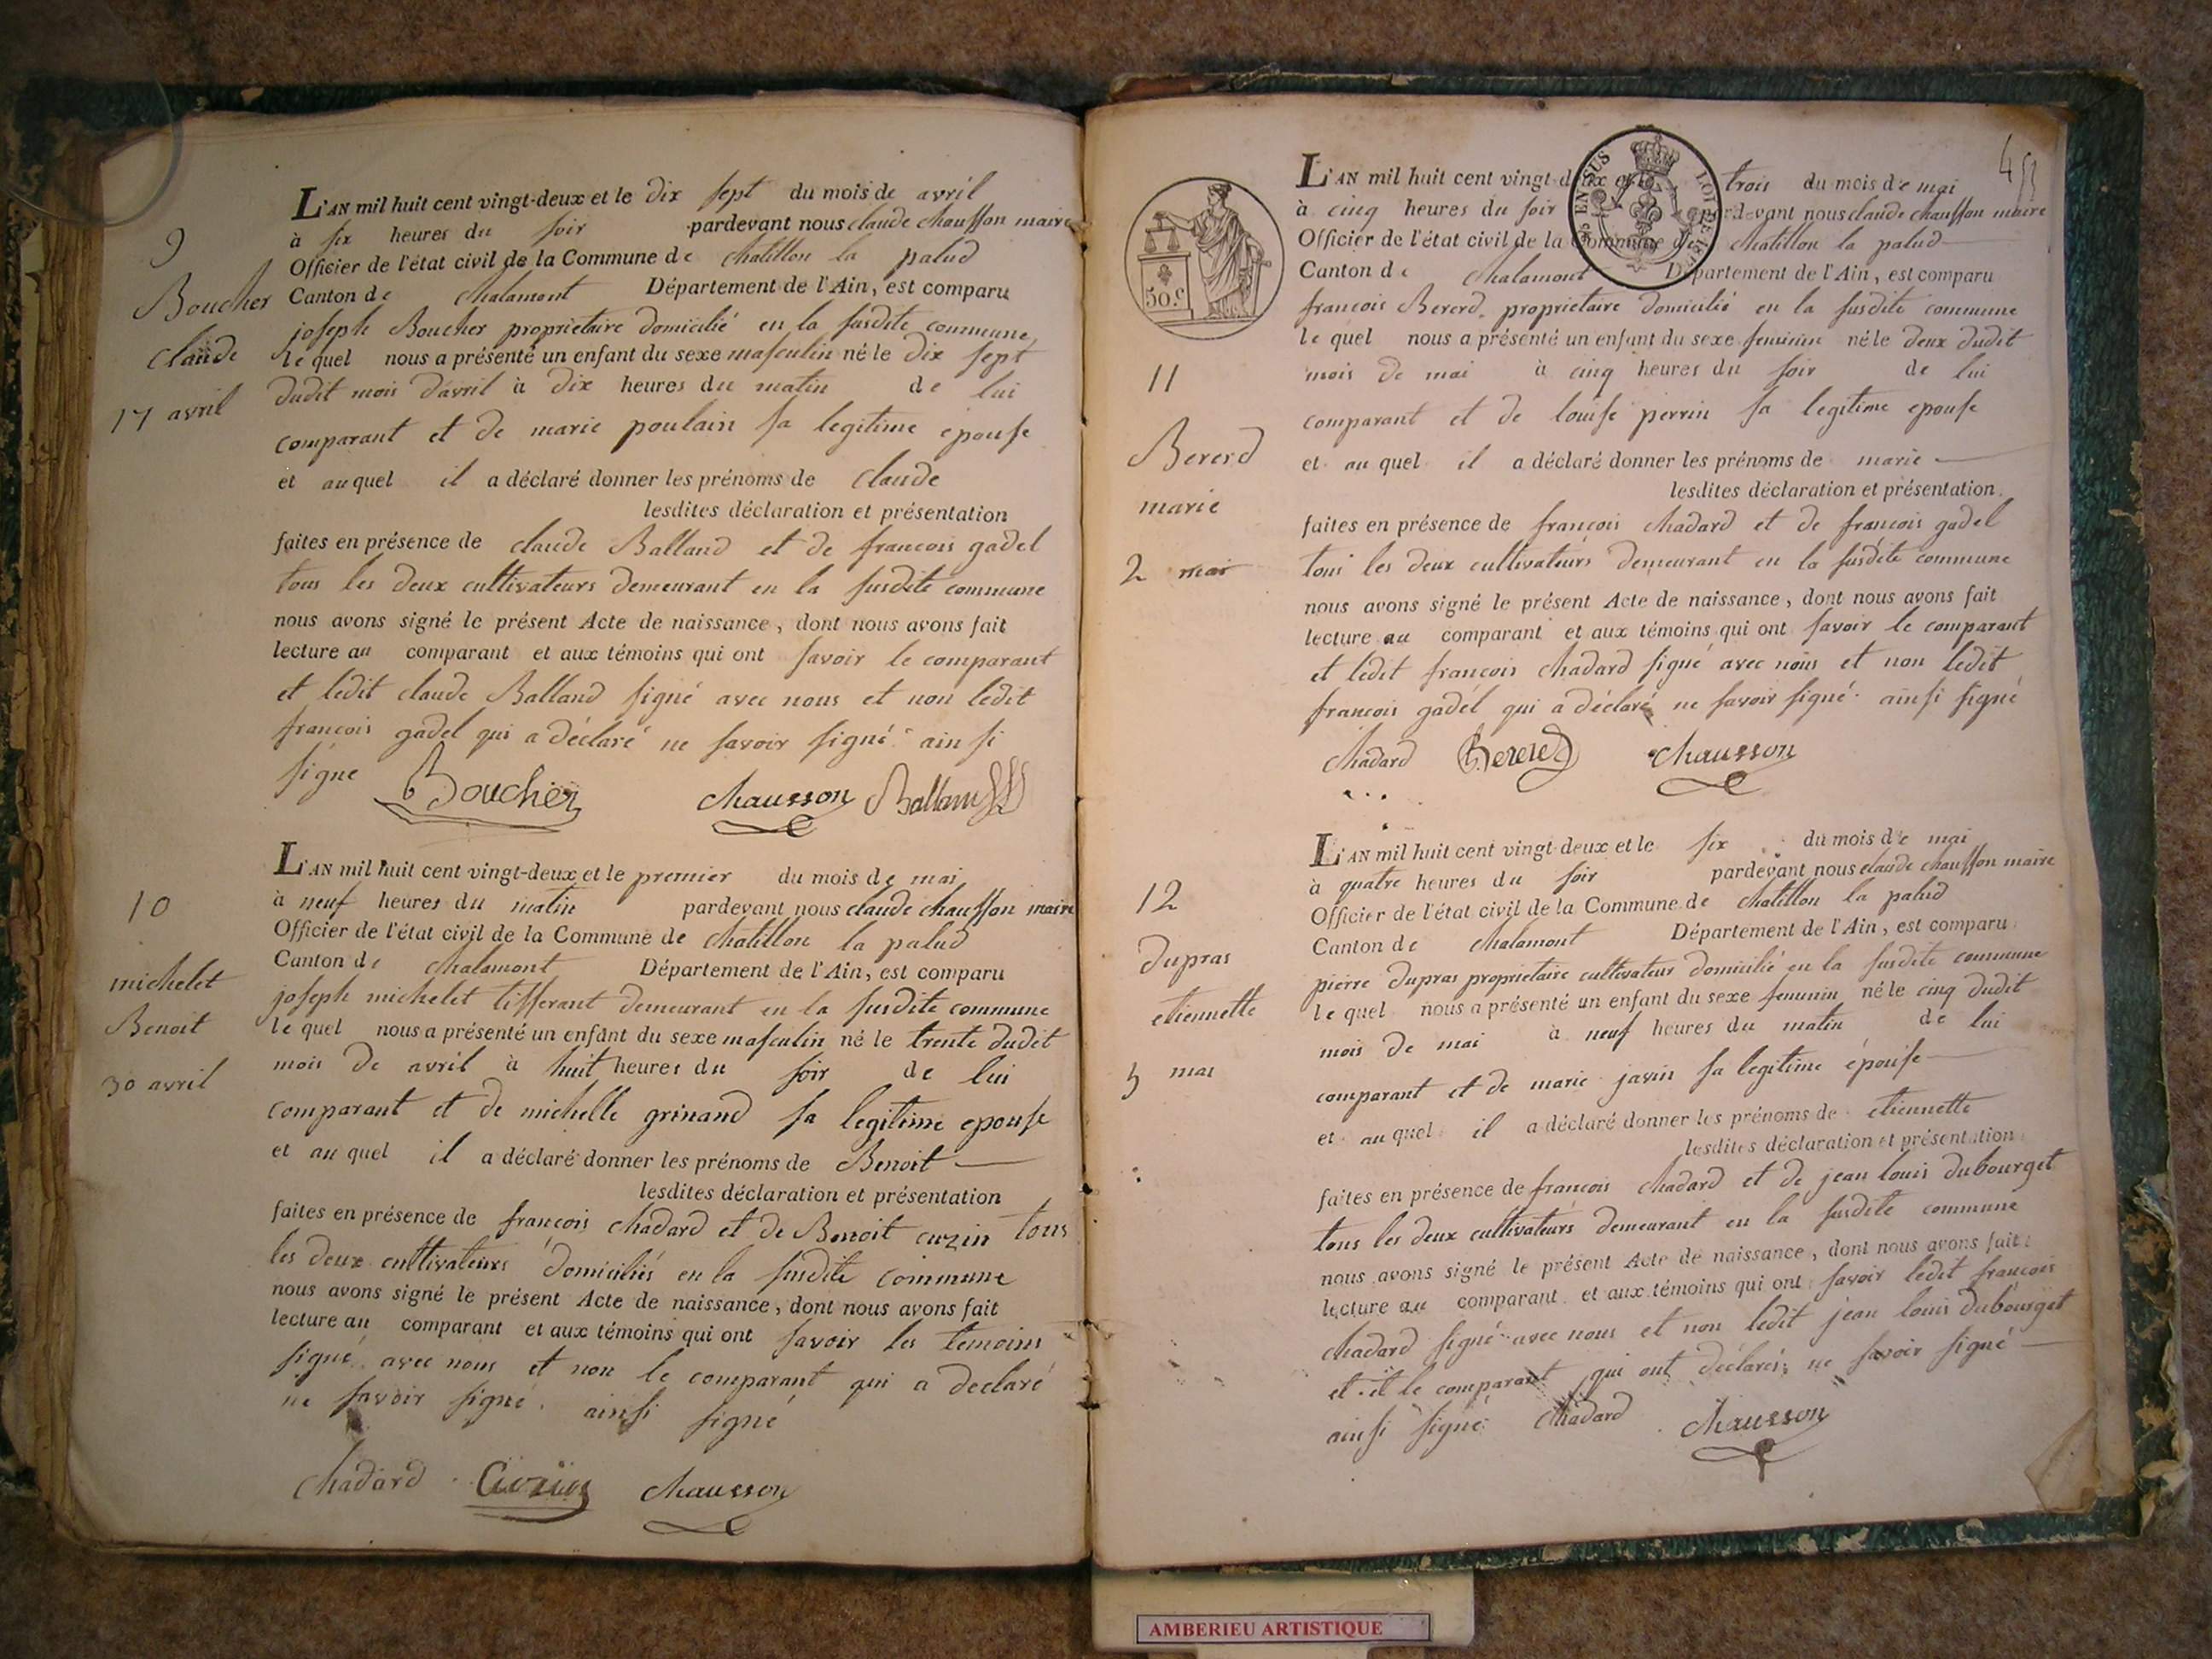 9
Boucher
Claude
17 avril
L'AN mil huit cent vingt-deux et le dix sept du mois de avril
à six heures du soir pardevant nous claude chausson maire
Officier de l'état civil de la Commune de chatillon la palud
Canton de chalamont Département de l'Ain, est comparu
joseph Boucher proprietaire domicilié en la susdite commune
le quel nous a présenté un enfant du sexe masculin né le dix sept
dudit mois d'avril à dix heures du matin de lui
comparant et de marie poulain sa legitime epouse
et auquel il a déclaré donner les prénoms de claude
lesdites déclaration et présentation
faites en présence de claude Balland et de francois gadel
tous les deux cultivateurs demeurant en la susdite commune
nous avons signé le présent Acte de naissance, dont nous avons fait
lecture au comparant et aux témoins qui ont savoir le comparant
et ledit claude Balland signé avec nous et non ledit
francois gadel qui a déclaré ne savoir signé ainsi
signe Boucher chausson Balland
10
michelet
Benoit
30 avril
L'AN mil huit cent vingt-deux et le premier du mois de mai
à neuf heures du matin pardevant nous claude chausson maire
Officier de l'état civil de la Commune de chatillon la palud
Canton de chalamont Département de l'Ain, est comparu
joseph michelet tisserant demeurant en la susdite commune
le quel nous a présenté un enfant du sexe masculin né le trente dudit
mois de avril à huit heures du soir de lui
comparant et de michelle grinand sa legitime epouse
et au quel il a déclaré donner les prénoms de Benoit
lesdites déclaration et présentation
faites en présence de françois chadard et de Benoit cuzin tous
les deux cultivateurs domiciliés en la susdite commune
nous avons signé le présent Acte de naissance, dont nous avons fait
lecture au comparant et aux témoins qui ont savoir les temoins
signé avec nous et non le comparant qui a declaré
ne savoir signé. ainsi signé
chadard Cuzin chausson
453
50.c
EN SUS
LOI DE
11
Bererd
marie
2 mai
L'AN mil huit cent vingt-deux et le trois du mois de mai
à cinq heures du soir pardevant nous claude chausson maire
Officier de l'état civil de la Commune de chatillon la palud
Canton de chalamont Département de l'Ain, est comparu
françois Bererd proprietaire domicilié en la susdite commune
le quel nous a présenté un enfant du sexe feminin né le deux dudit
mois de mai à cinq heures du soir de lui
comparant et de louise perrin sa legitime epouse
et au quel il a déclaré donner les prénoms de marie
lesdites déclaration et présentation
faites en présence de françois chadard et de françois gadel
tous les deux cultivateurs demeurant en la susdite commune
nous avons signé le présent Acte de naissance, dont nous avons fait
lecture au comparant et aux témoins qui ont savoir le comparant
et ledit françois chadard signé avec nous et non ledit
francois gadel qui a déclaré ne savoir signé. ainsi signé
chadard Bererd chausson
12
dupras
etiennette
5 mai
L'AN mil huit cent vingt-deux et le six du mois de mai
à quatre heures du soir pardevant nous claude chausson maire
Officier de l'état civil de la Commune de chatillon la palud
Canton de chalamont Département de l'Ain, est comparu
pierre dupras proprietaire cultivateur domicilié en la susdite commune
le quel nous a présenté un enfant du sexe feminin né le cinq dudit
mois de mai à neuf heures du matin de lui
comparant et de marie javin sa legitime épouse
et au quel il a déclaré donner les prénoms de etiennette
lesdites déclaration et présentation
faites en présence de francois chadard et de jean louis dubourget
tous les deux cultivateurs demeurant en la susdite commune
nous avons signé le présent Acte de naissance, dont nous avons fait
lecture au comparant et aux témoins qui ont savoir ledit francois
chadard signé avec nous et non ledit jean louis dubourget
et le comparant qui ont déclarés ne savoir signé
ainsi signé chadard chausson
AMBERIEU ARTISTIQUE